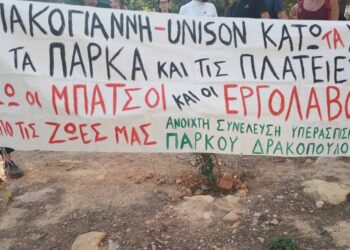 ΠΑΚΟΓΙΑΝΝΗ-UNISON ΚΑΤΩ ΤΑ
ΤΑ ΠΑΡΚΑ ΚΑΙ ΤΙΣ ΠΛΑΤΕΙΕ
Ω ΟΙ ΜΠΑΤΣΟΙ ΚΑΙ ΟΙ ΕΡΓΟΛΑΒΟ
ΠΟ ΤΙΣ ΖΩΕΣ ΜΑΣ
ΑΝΟΙΧΤΗ ΣΥΝΕΛΕΥΣΗ ΥΠΕΡΑΣΠΙΣ
ΠΑΡΚΟΥ ΔΡΑΚΟΠΟΥΛΟ